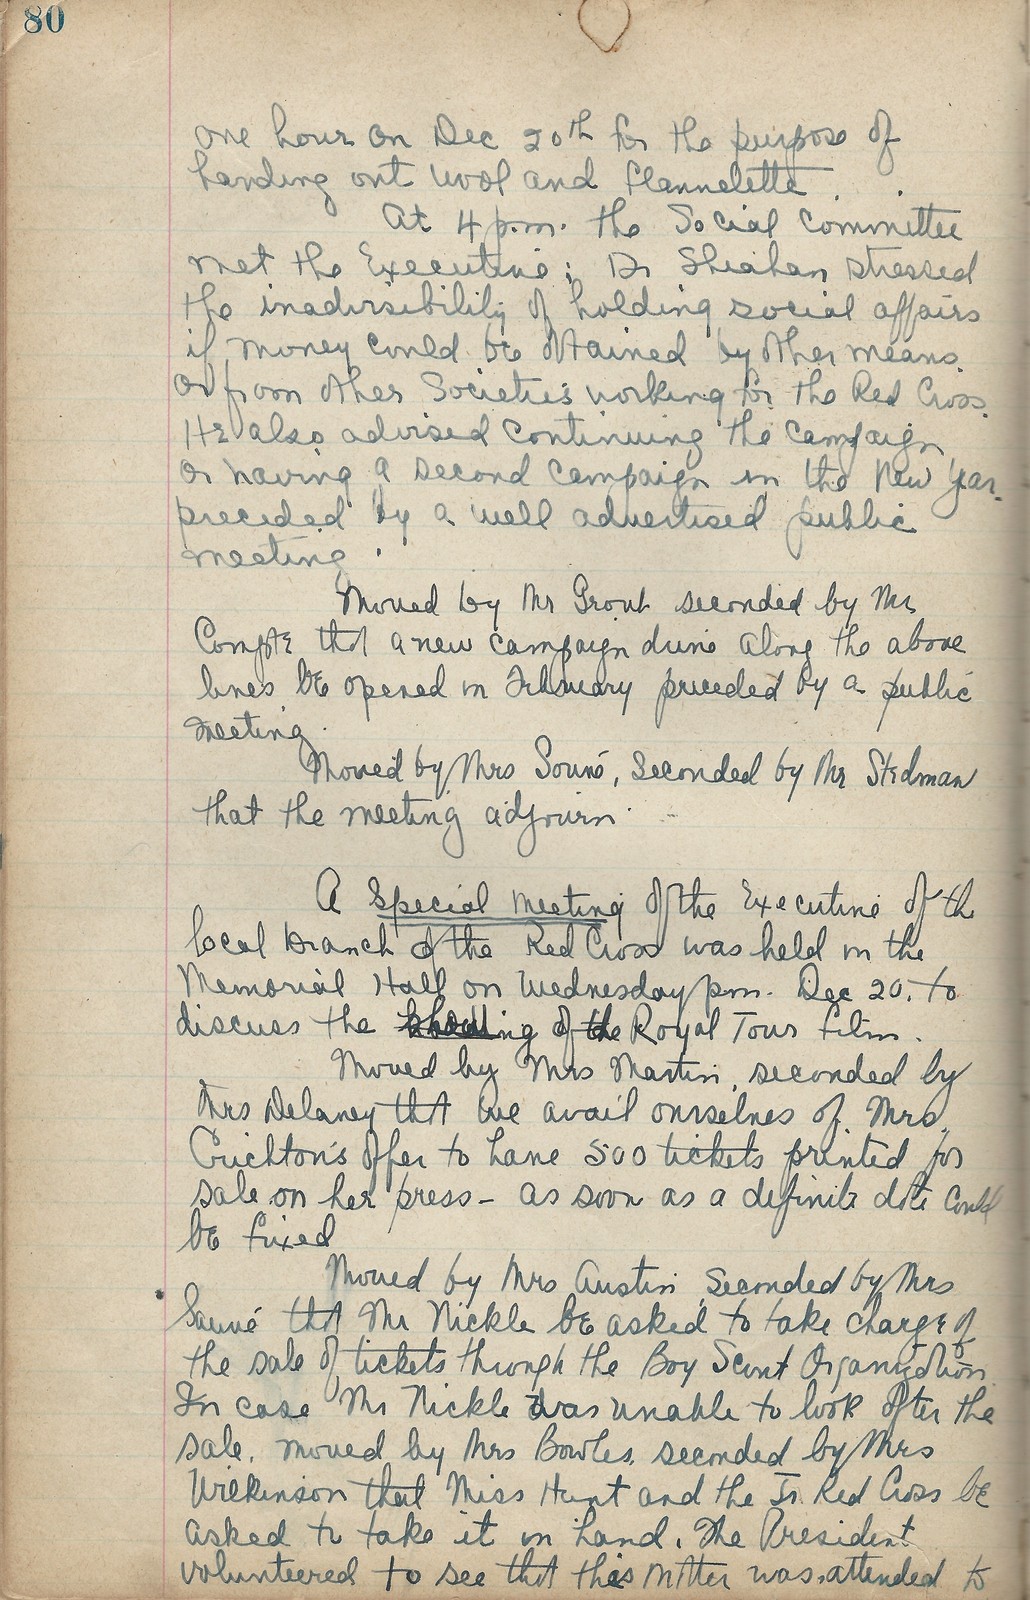 80
one hour on Dec 20th for the purpose of
handing out wool and flannelette.
At 4 p.m. the Social Committee
met the Executive; Dr Sheahan stressed
the inadvisibility of holding social affairs
if money could be obtained by other means.
or from other Societies working for the Red Cross.
He also advised continuing the campaign
or having a second campaign in the New Year.
preceded by a well advertised public
meeting.
Moved by Mr Grout seconded by Mr
that a new campaign drive along the above
lines be opened in February preceded by a public
meeting.
Moved by Mrs Sauvé, seconded by Mr Stedman
that the meeting adjourn.
A Special Meeting of the Executive of the
local branch of the Red Cross was held in the
Memorial Hall on Wednesday pm. Dec 20. to
discuss the showing of the Royal Tour film.
Moved by Mrs Martin, seconded by
Mrs Delaney that we avail ourselves of Mrs.
Crichton's offer to have 500 tickets printed for
sale on her press - as soon as a definite date could
be fixed
Moved by Mrs Austin, seconded by Mrs
Sauvé that Mr Nickle be asked to take charge of
the sale of tickets through the Boy Scout Organization.
In case Mr Nickle was unable to look after the
sale, moved by Mrs Bowles, seconded by Mrs
Wilkinson that Miss Hunt and the Jr. Red Cross be
asked to take it in hand. The President
volunteered to see that this matter was attended to